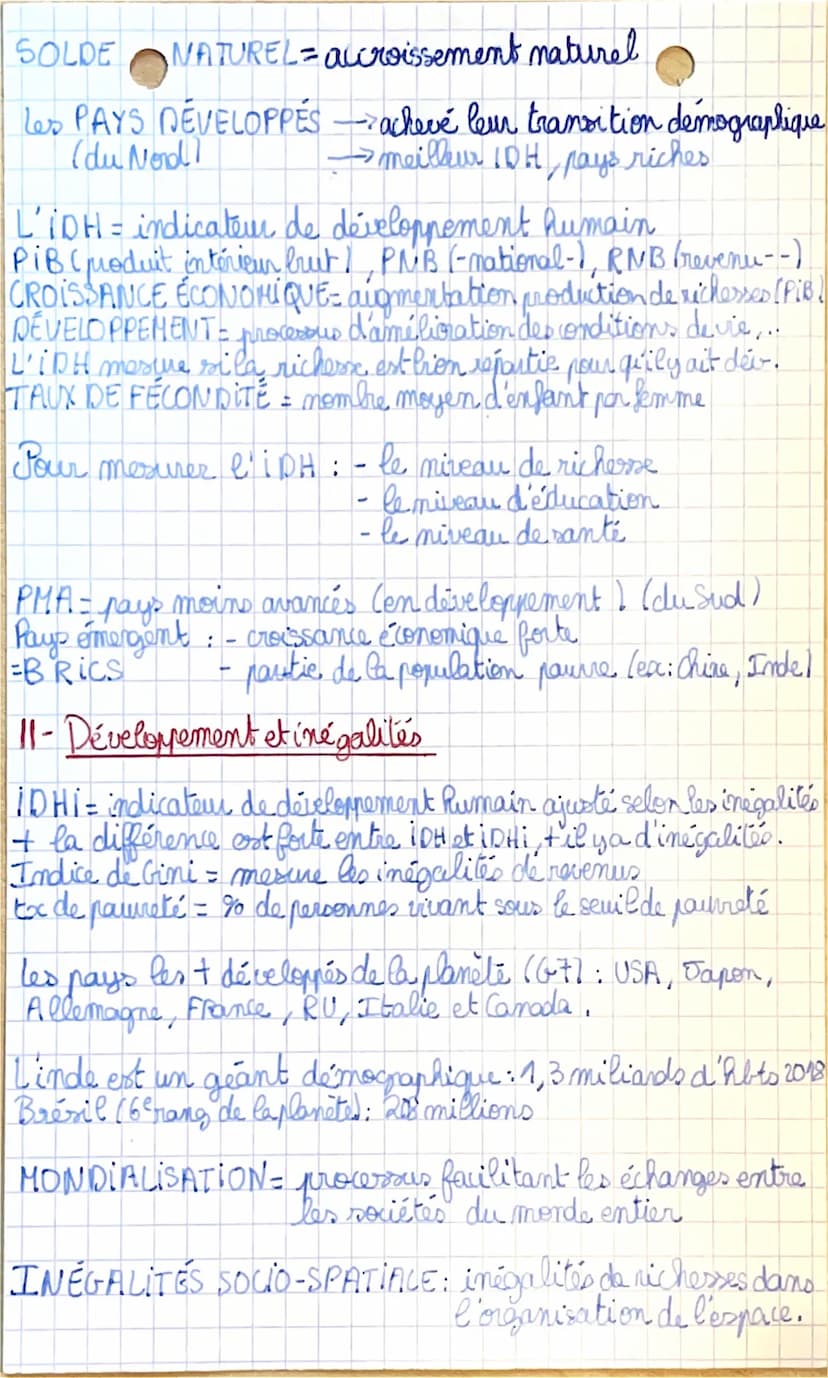 SOLDE NATUREL = accroissement naturel
Les PAYS DÉVELOPPÉS → achevé leur transition démographique
(du Nord) → meilleur IDH, pays riches
L'iDH = indicateur de développement humain
PiB (produit intérieur brut), PNB (-national-), RNB (revenu--)
CROiSSANCE ÉCONOMiQUE = augmentation production de richesses (PiB)
DÉVELOPPEMENT = processus d'amélioration des conditions de vie,...
L'iDH mesure si la richesse est bien répartie pour qu'il y ait dév.
TAUX DE FÉCONDiTÉ = nombre moyen d'enfant par femme
Pour mesurer l'iDH : - le niveau de richesse
- le niveau d'éducation
- le niveau de santé
PMA = pays moins avancés (en développement) (du Sud)
Pays émergent : - croissance économique forte
=BRiCS - partie de la population pauvre (ex: Chine, Inde)
II- Développement et inégalités
iDHi = indicateur de développement humain ajusté selon les inégalités
+ la différence est forte entre iDH et iDHi, + il y a d'inégalités.
Indice de Gini = mesure les inégalités de revenus
tx de pauvreté = % de personnes vivant sous le seuil de pauvreté
Les pays les + développés de la planète (G7) : USA, Japon,
Allemagne, France, RU, Italie et Canada.
L'inde est un géant démographique : 1,3 miliards d'hbts 2018
Brésil (6e rang de la planète) : 208 millions
MONDiALiSATiON = processus facilitant les échanges entre
les sociétés du monde entier
INÉGALiTÉS SOCiO-SPATiALE : inégalités de richesses dans
l'organisation de l'espace.